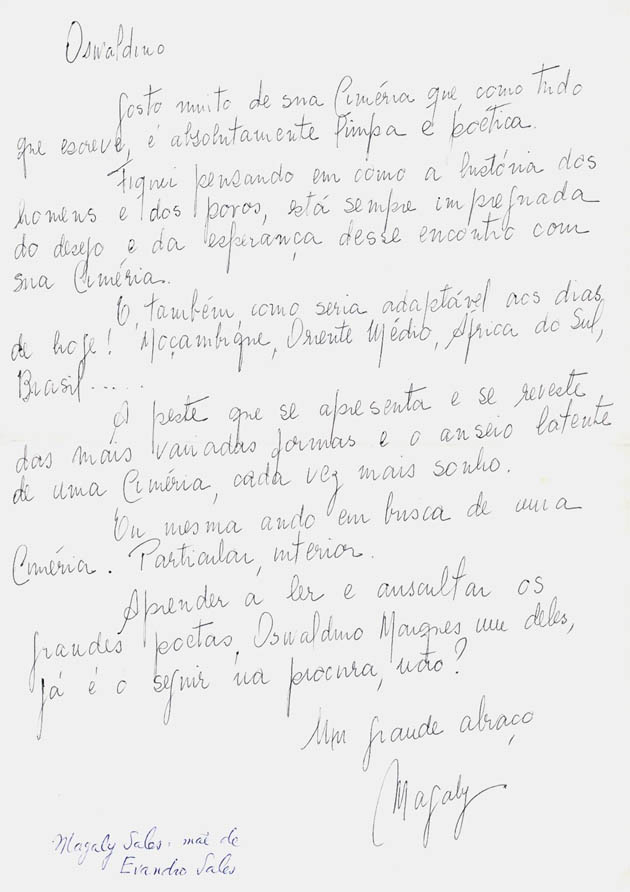 Oswaldino
Gosto muito de sua Ciméria que, como tudo
que escreve, é absolutamente limpa e poética.
Fiquei pensando em como a história dos
homens e dos povos, está sempre impregnada
do desejo e da esperança desse encontro com
sua Ciméria.
E, também, como seria adaptável aos dias
de hoje! Moçambique, Oriente Médio, África do Sul,
Brasil.....
A peste que se apresenta e se reveste
das mais variadas formas e o anseio latente
de uma Ciméria, cada vez mais sonho.
Eu mesma ando em busca de uma
Ciméria. Particular, interior.
Aprender a ler e auscultar os
grandes poetas, Oswaldino Marques um deles,
já é o seguir na procura, não?
Um grande abraço
Magaly
Magaly Sales: mãe de
Evandro Sales